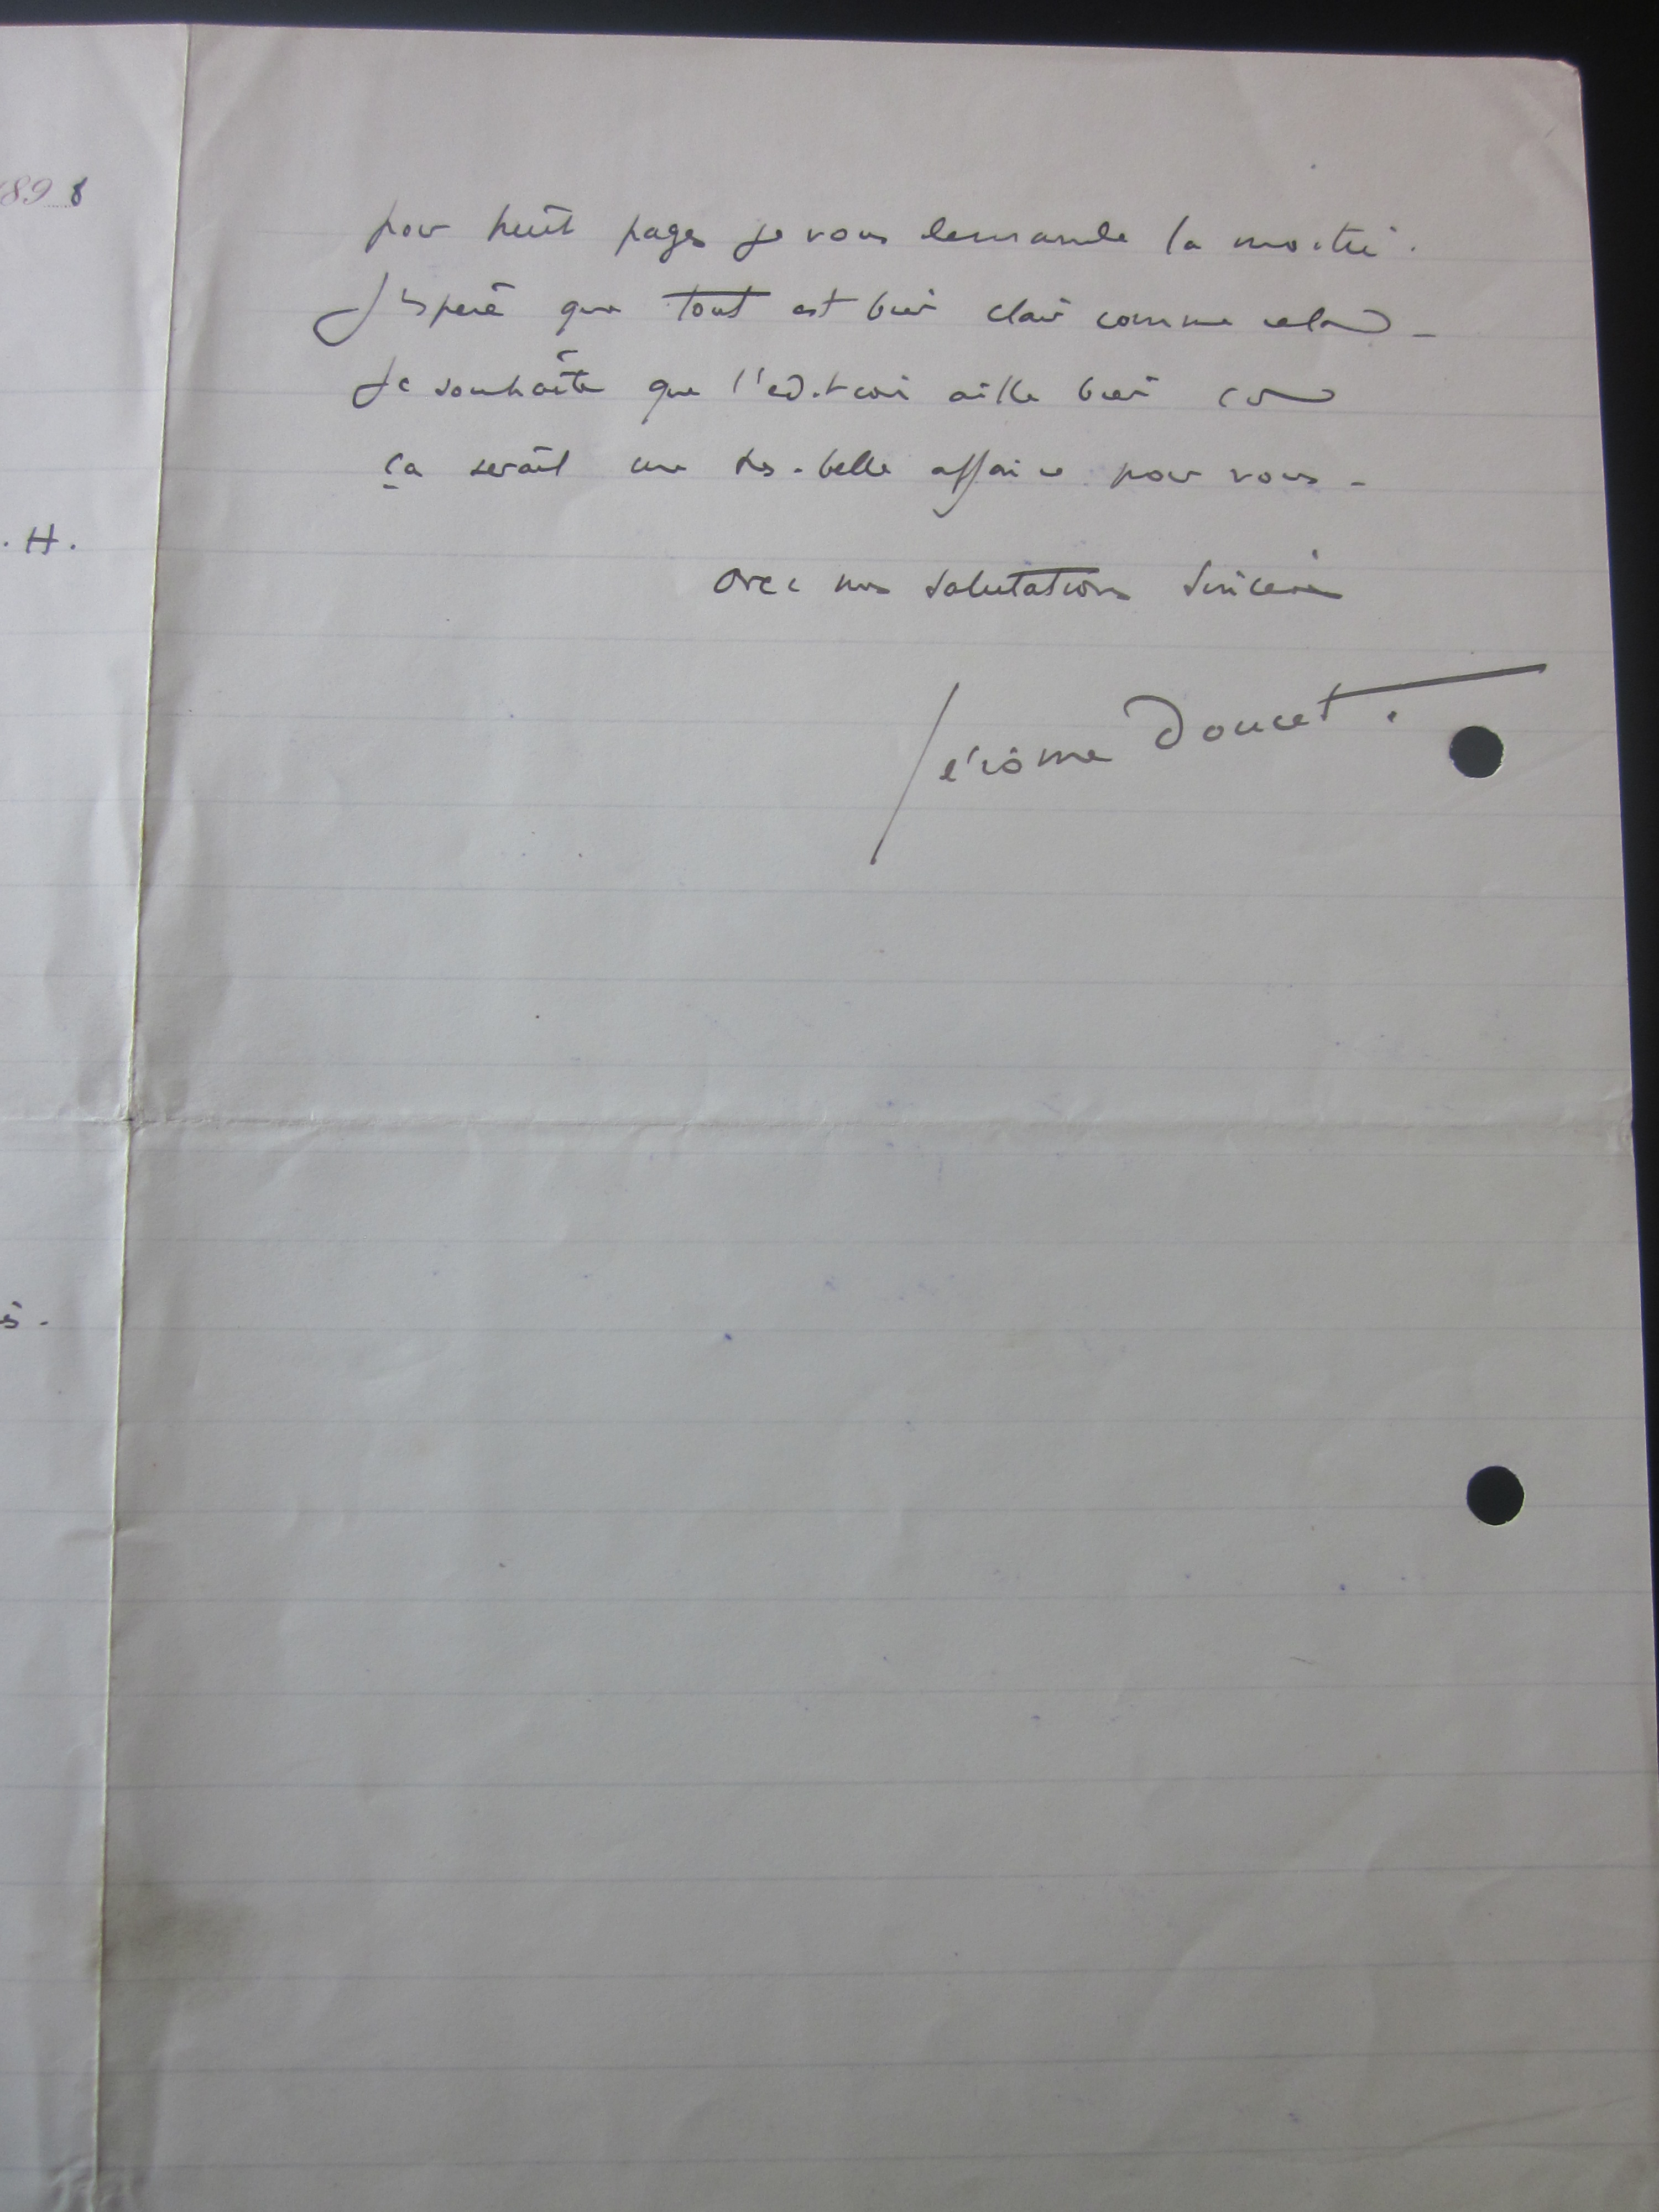 1898
pour huit pages je vous demande la moitié.
J'espère que tout est bien clair comme cela -
Je souhaite que l'édition aille bien car
ça serait une très-belle affaire pour vous -
. H.
avec mes salutations sincères
Jérôme Doucet.
és -